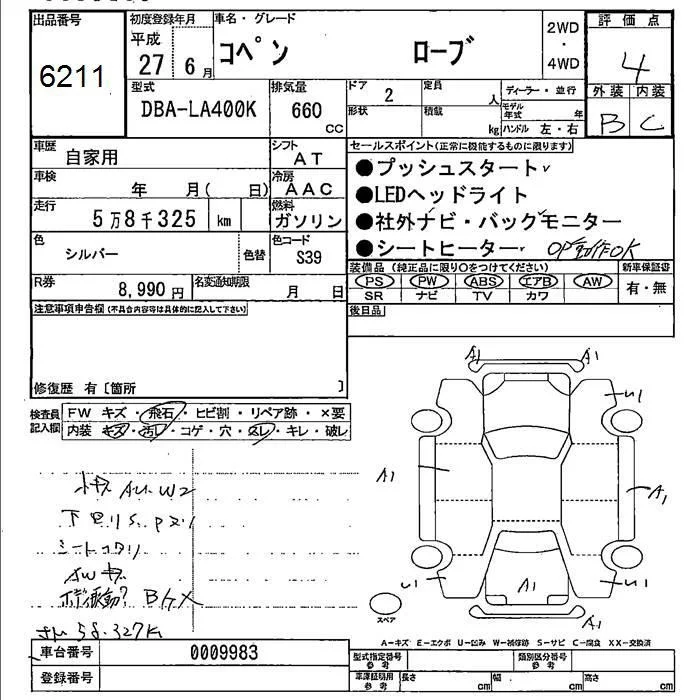 出品番号
6211
初度登録年月
平成
27 6月
車名・グレード
コペン ローブ
2WD
・
4WD
評価点
4
外装 内装
B C
型式
DBA-LA400K
排気量
660
CC
ドア
2
定員
人
形状
積載
kg
ディーラー・並行
モデル年式 年
ハンドル 左・右
車歴
自家用
シフト
AT
車検
年 月( 日)
冷房
AAC
走行
5万8千325 km
燃料
ガソリン
色
シルバー
色替
色コード
S39
R券
8,990円
名変通知期限
月 日
セールスポイント(正常に機能するものに限ります)
●プッシュスタート
●LEDヘッドライト
●社外ナビ・バックモニター
●シートヒーター OP動作OK
装備品 (純正品に限り○をつけてください)
PS PW ABS エアB AW
SR ナビ TV カワ
新車保証書
有・無
後日品
注意事項申告欄(不具合内容等は具体的に記入して下さい)
修復歴 有〔箇所 〕
検査員
記入欄
FW キズ・飛石・ヒビ割・リペア跡・×要
内装 キズ・汚レ・コゲ・穴・スレ・キレ・破レ
AU.W2
シート
AWキズ
58.327K
A1
A1
U1
A1
A1
U1
A1
U1
A1
スペア
A-キズ E-エクボ U-凹み W-補修跡 S-サビ C-腐食 XX-交換済
車台番号
0009983
登録番号
型式指定番号
参考
類別区分番号
参考
車庫証明用
参考
長さ
cm
幅
cm
高さ
cm